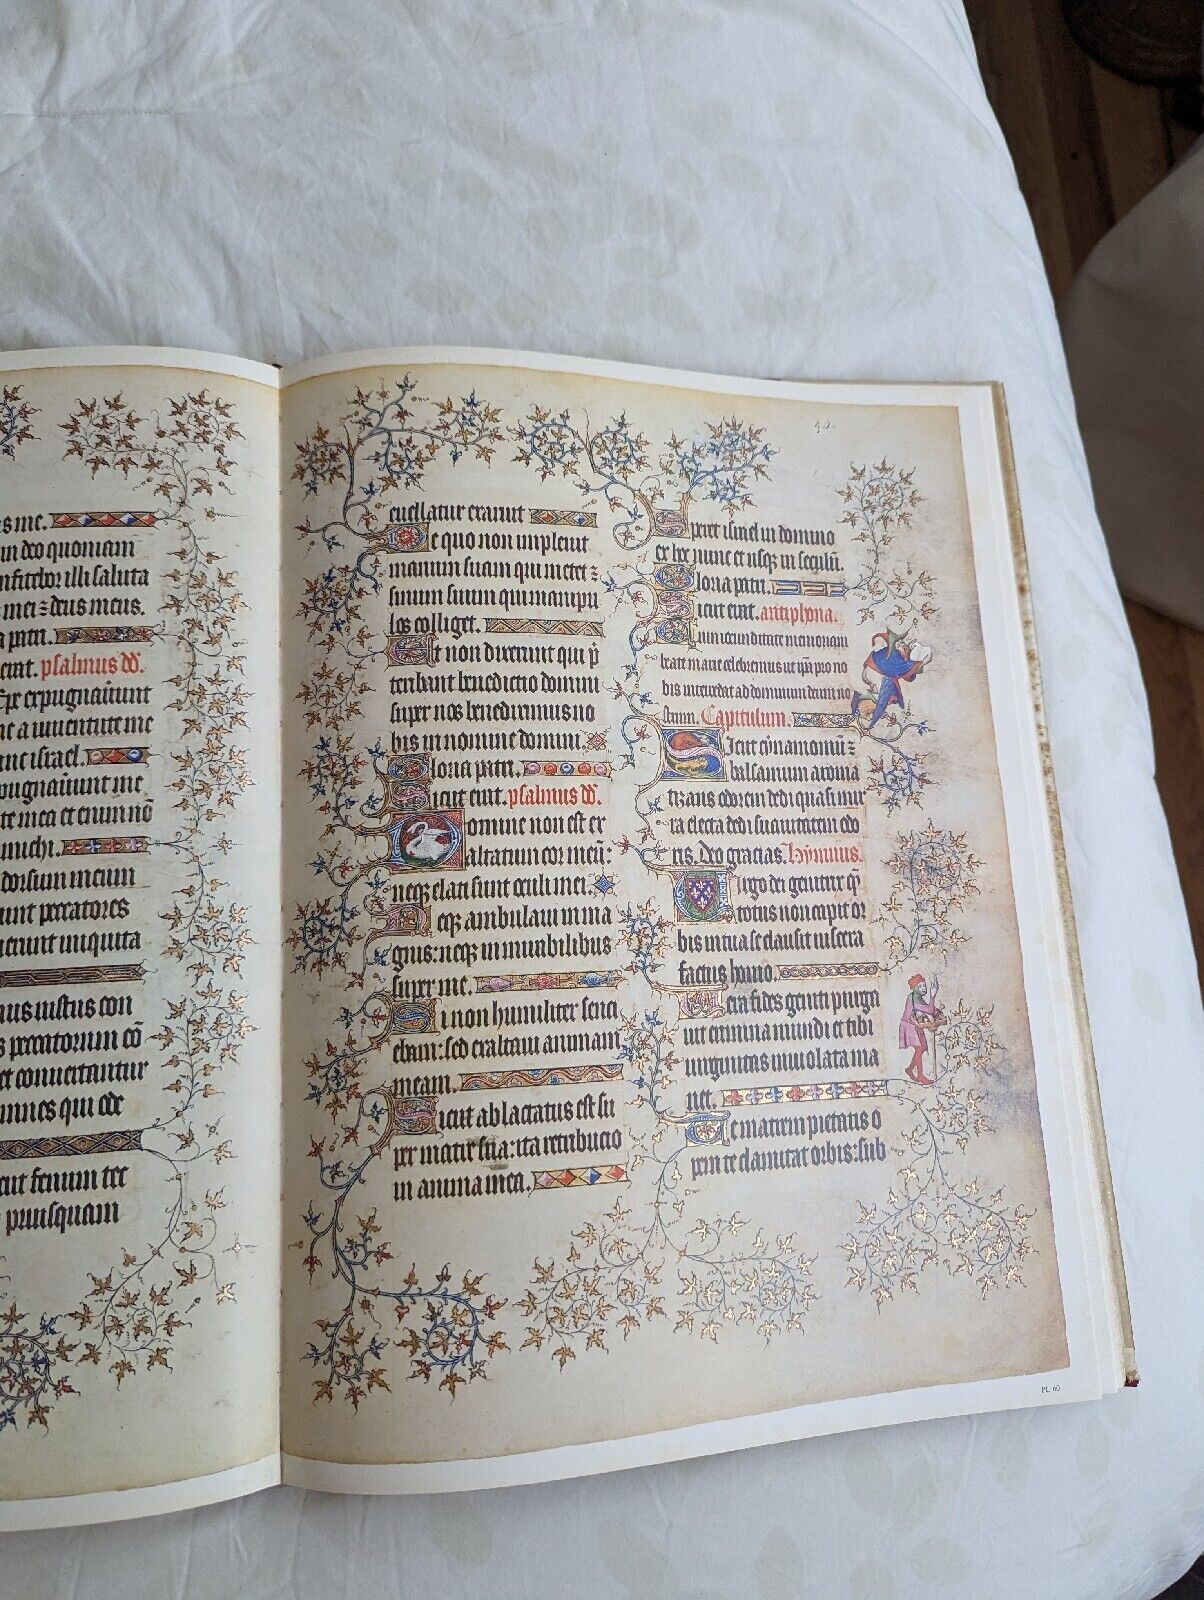 s me.
un deo quoniam
nfitebor illi saluta
mei z deus meus.
a patri.
erat. psalmus dd.
expugnauerunt
ne a iuuentute me
unc israel.
pugnauerunt me
te mea et enim nō
michi.
dorsum meum
unt peccatores
uerunt iniquita
nus iustus con
s peccatorum cō
et conuertantur
omnes qui ode
cut fenum tec
priusquam
euellatur exaruit
De quo non impleuit
manum suam qui metet z
sinum suum qui manipu
los colliget.
Et non dixerunt qui p̄
teribant benedictio domini
super uos benediximus uo
bis in nomine domini.
Gloria patri.
Sicut erat. psalmus dd.
Domine non est ex
altatum cor meū:
neqꝫ elati sunt oculi mei.
Neqꝫ ambulaui in ma
gnis: neqꝫ in mirabilibus
super me.
Si non humiliter senci
ebam: sed exaltaui animam
meam.
Sicut ablactatus est su
per matre sua: ita retribucio
in anima mea.
40.
Speret israel in domino
ex hoc nunc et usqꝫ in seculū.
Gloria patri.
Sicut erat. antiphona.
Cum iocunditate memoriam
beate marie celebremus ut ip̄a pro no
bis intercedat ad dominum deum no
strum. Capitulum.
Sicut cynamomū z
balsamum aroma
tizans odorem dedi quasi mir
ra electa dedi suauitatem odo
ris. Deo gracias. Hymnus.
Uirgo dei genitrix q̄
totus non capit or
bis in tua se clausit uiscera
factus homo.
Uera fides geniti purga
uit crimina mundi et tibi
uirginitas inuiolata ma
net.
Te matrem pietatis o
pem te clamitat orbis: sub
PL. 60